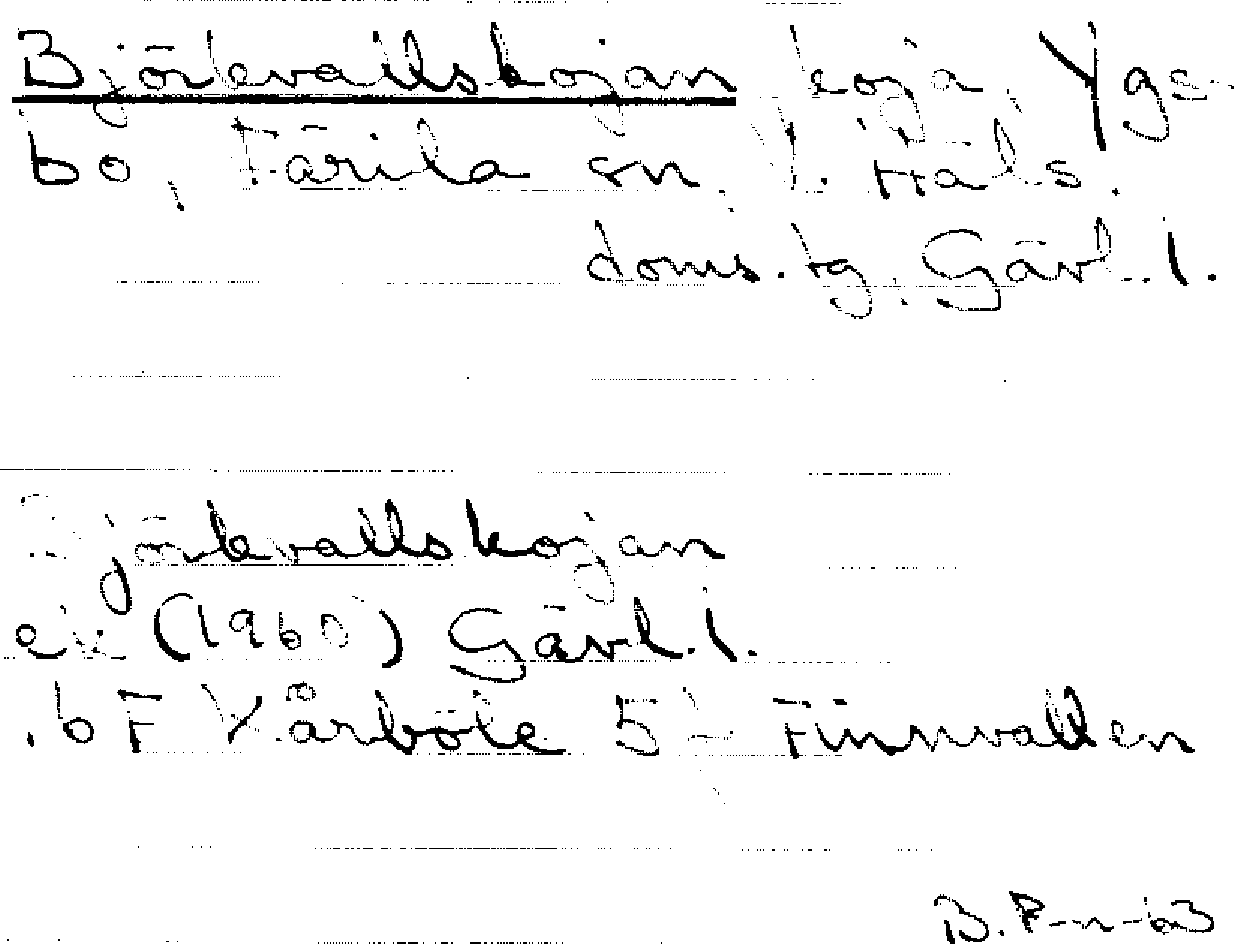 Björkvallskojan koja, Ygs-
bo, Färila sn, V. Häls.
doms. tg. Gävl. l.
Björkvallskojan
ek (1960) Gävl. l.
.6 F Kårböle 5 Finnvallen
B. P-n-63